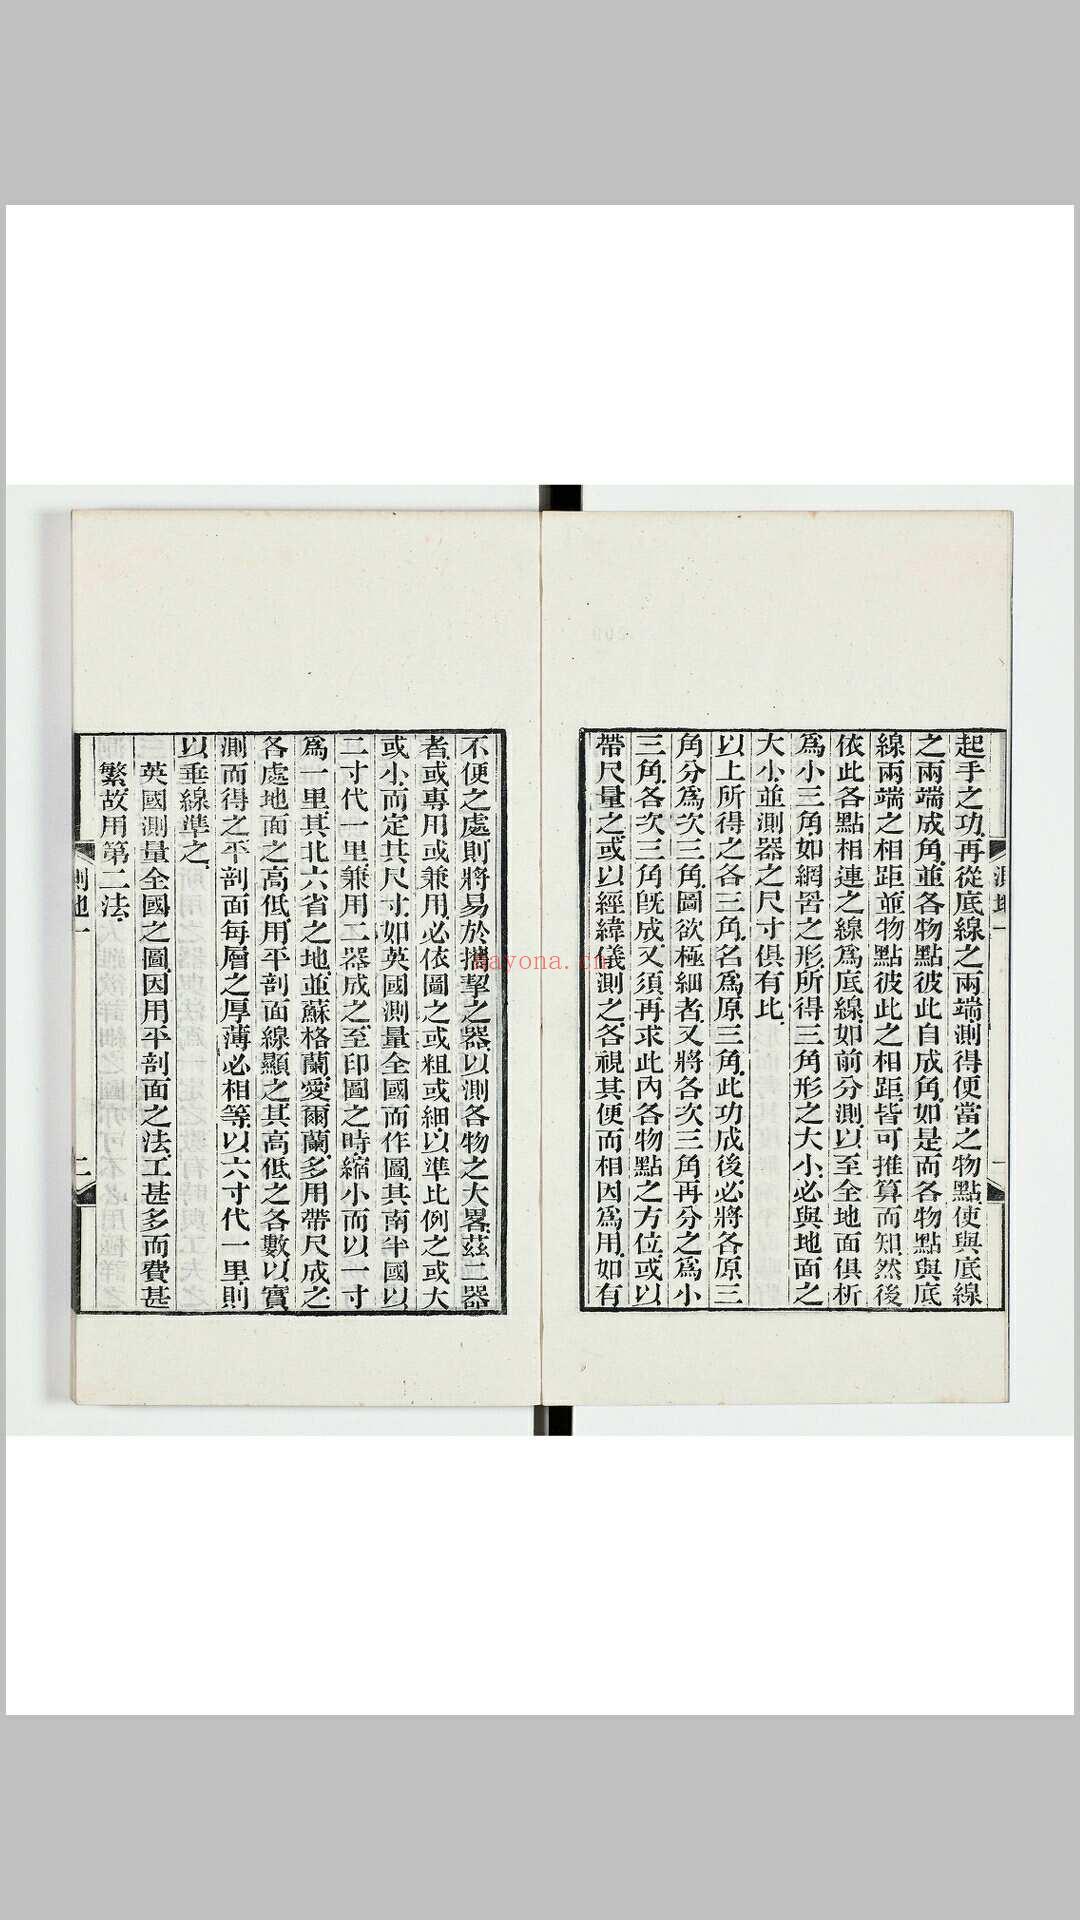 起手之功.再從底線之兩端.測得便當之物點.使與底線
之兩端成角.並各物點彼此自成角.如是.而各物點與底
線兩端之相距.並物點彼此之相距.皆可推算而知.然後
依此各點相連之線爲底線.如前分測.以至全地面俱析
爲小三角如網罟之形.所得三角形之大小.必與地面之
大小.並測器之尺寸俱有比.
以上所得之各三角.名爲原三角.此功成後.必將各原三
角分爲次三角.圖欲極細者.又將各次三角.再分之爲小
三角.各次三角旣成.又須再求此內各物點之方位.或以
帶尺量之.或以經緯儀測之.各視其便而相因爲用.如有
測地一
不便之處.則將易於攜挈之器.以測各物之大畧.茲二器
者.或專用.或兼用.必依圖之或粗或細.以準比例之或大
或小.而定其尺寸.如英國測量全國而作圖.其南半國以
二寸代一里.兼用二器成之.至印圖之時.縮小而以一寸
爲一里.其北六省之地.並蘇格蘭愛爾蘭.多用帶尺成之.
各處地面之高低.用平剖面線顯之.其高低之各數.以實
測而得之.平剖面每層之厚薄必相等.以六寸代一里.則
以垂線準之.
英國測量全國之圖.因用平剖面之法.工甚多而費甚
繁.故用第二法.
測地一
二
nayona.cn